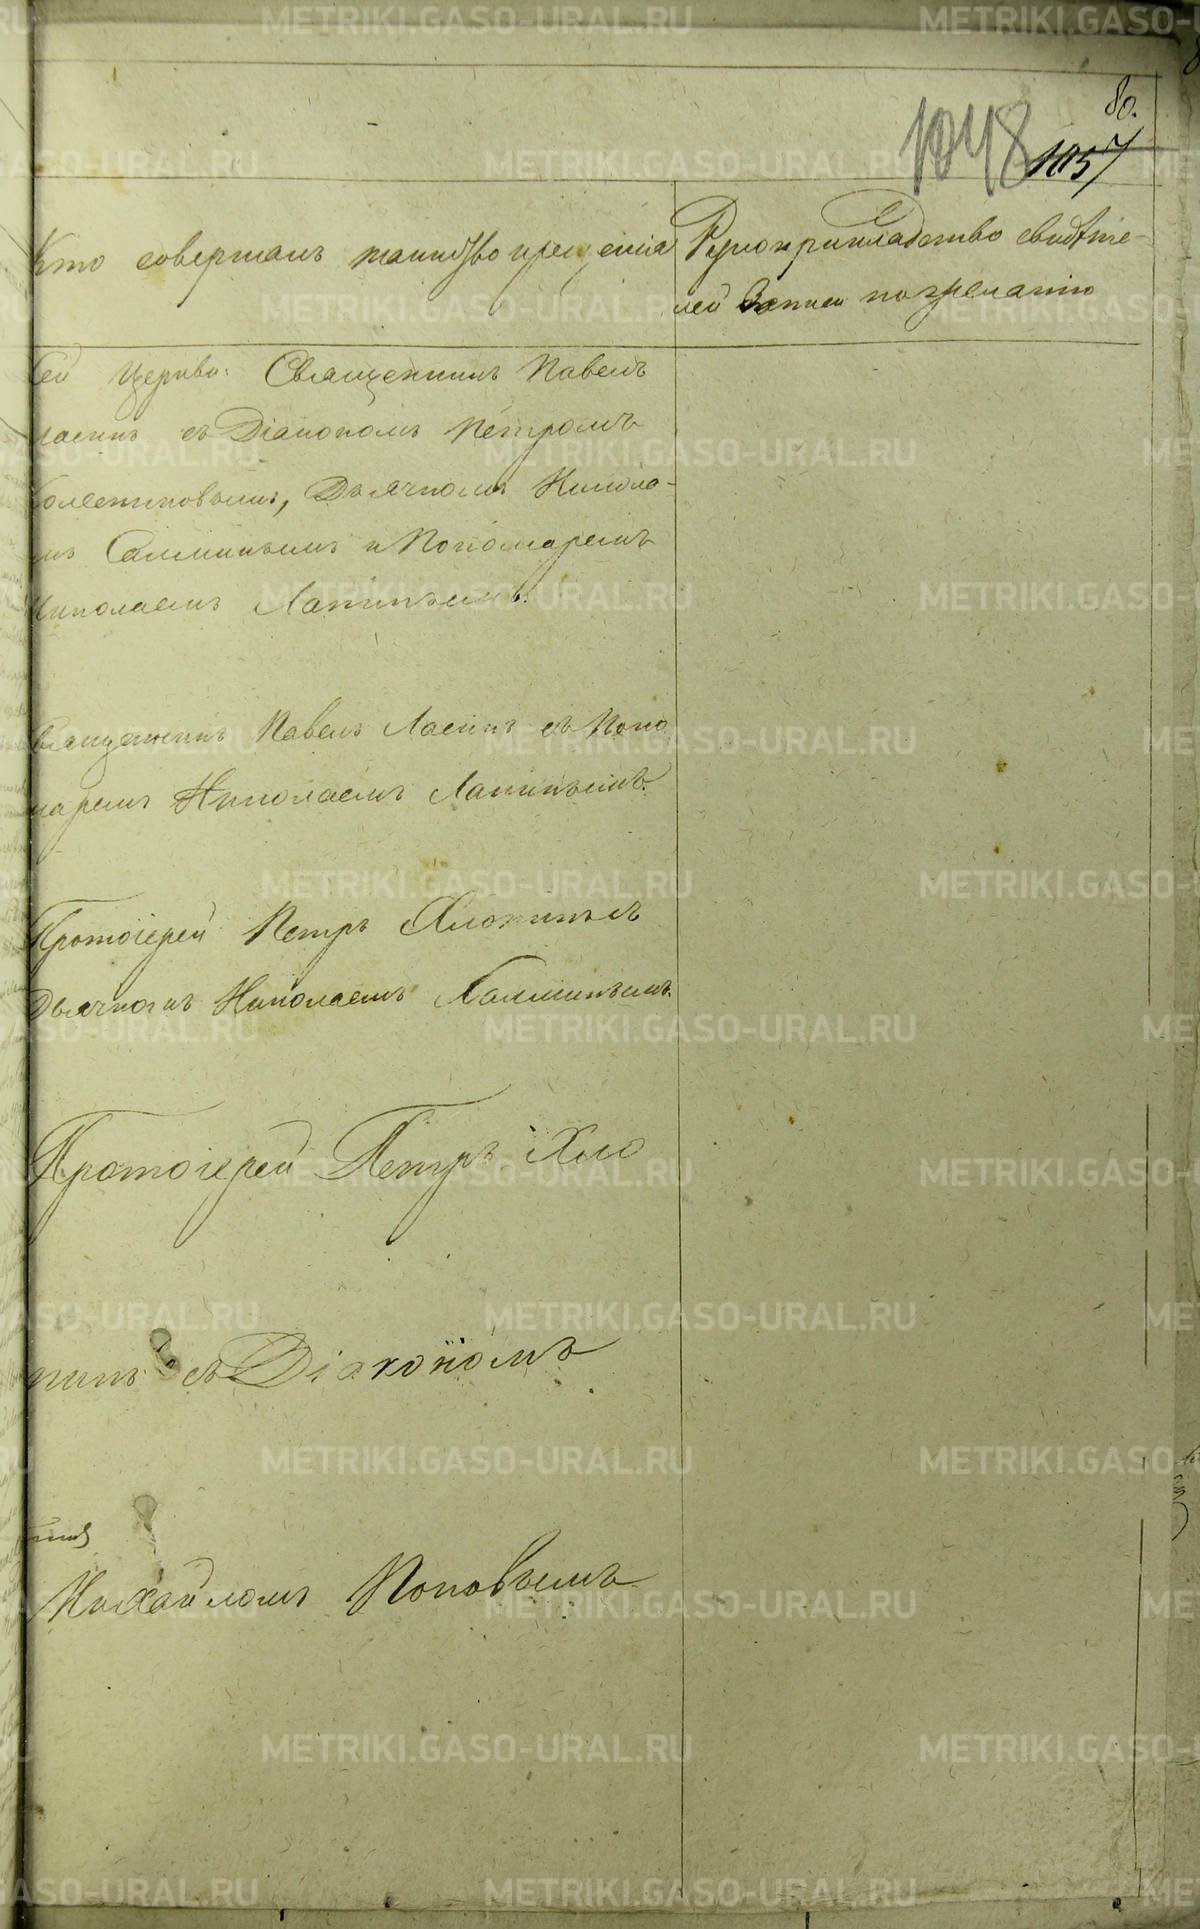 80.
1048 1057
Кто совершалъ таинство крещенія
Рукоприкладство свидѣте-
лей записи по желанію
Сей Церкви: Священникъ Павелъ
Ласинъ съ Діакономъ Петромъ
Дьячкомъ Никола-
и Пономаремъ
Николаемъ Лапинымъ.
Священникъ Павелъ Ласинъ съ Поно
маремъ Николаемъ Лапинымъ.
Протоіерей Петръ Хлопинъ съ
Дьячкомъ Николаемъ
Протоіерей Петръ Хло
пинъ съ Діакономъ
Михайломъ Поповымъ
METRIKI.GASO-URAL.RU